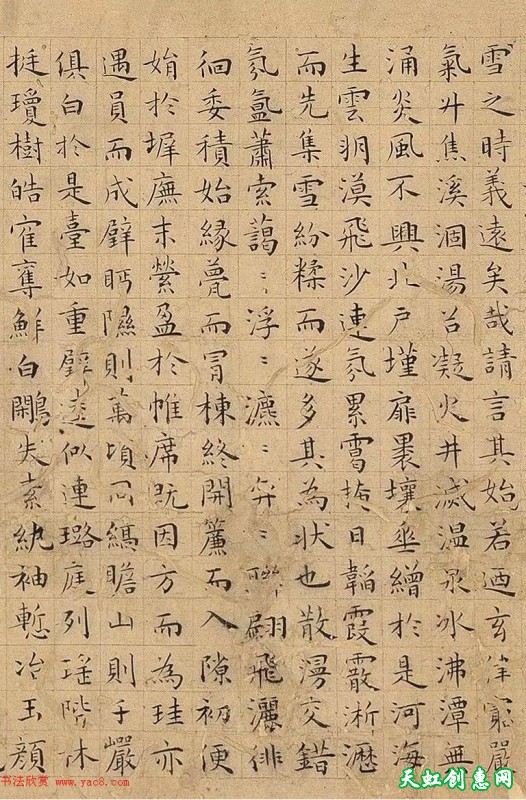 雪之時義遠矣哉請言其始若迺玄律窮嚴
氣升焦溪涸湯谷凝火井滅温泉冰沸潭無
涌炎風不興北戶墐扉裸壤垂繒於是河海
生雲朔漠飛沙連氛累靄掩日韜霞霰淅瀝
而先集雪紛糅而遂多其為狀也散漫交錯
氛氳蕭索藹〻浮〻瀌〻弈〻聯翩飛灑徘
徊委積始緣甍而冒棟終開簾而入隙初便
娟於墀廡末縈盈於帷席既因方而為珪亦
遇員而成璧眄隰則萬頃同縞瞻山則千巖
俱白於是臺如重璧逵似連璐庭列瑤階林
挺瓊樹皓寉奪鮮白鷴失素紈袖慙冶玉顏
书法欣赏 www.yac8.com
天虹创意网